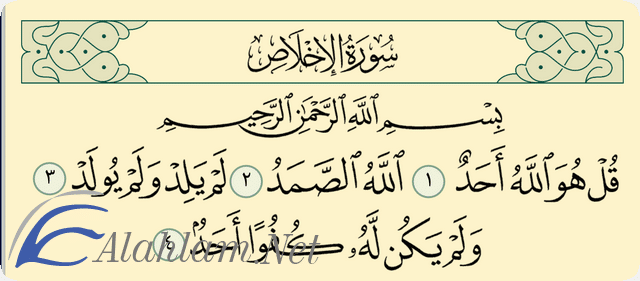 سُورَةُ الإِخْلَاصِ
بِسْمِ ٱللَّهِ ٱلرَّحْمَٰنِ ٱلرَّحِيمِ
قُلْ هُوَ ٱللَّهُ أَحَدٌ ١ ٱللَّهُ ٱلصَّمَدُ ٢ لَمْ يَلِدْ وَلَمْ يُولَدْ ٣
وَلَمْ يَكُن لَّهُۥ كُفُوًا أَحَدٌۢ ٤
Alahlam.Net